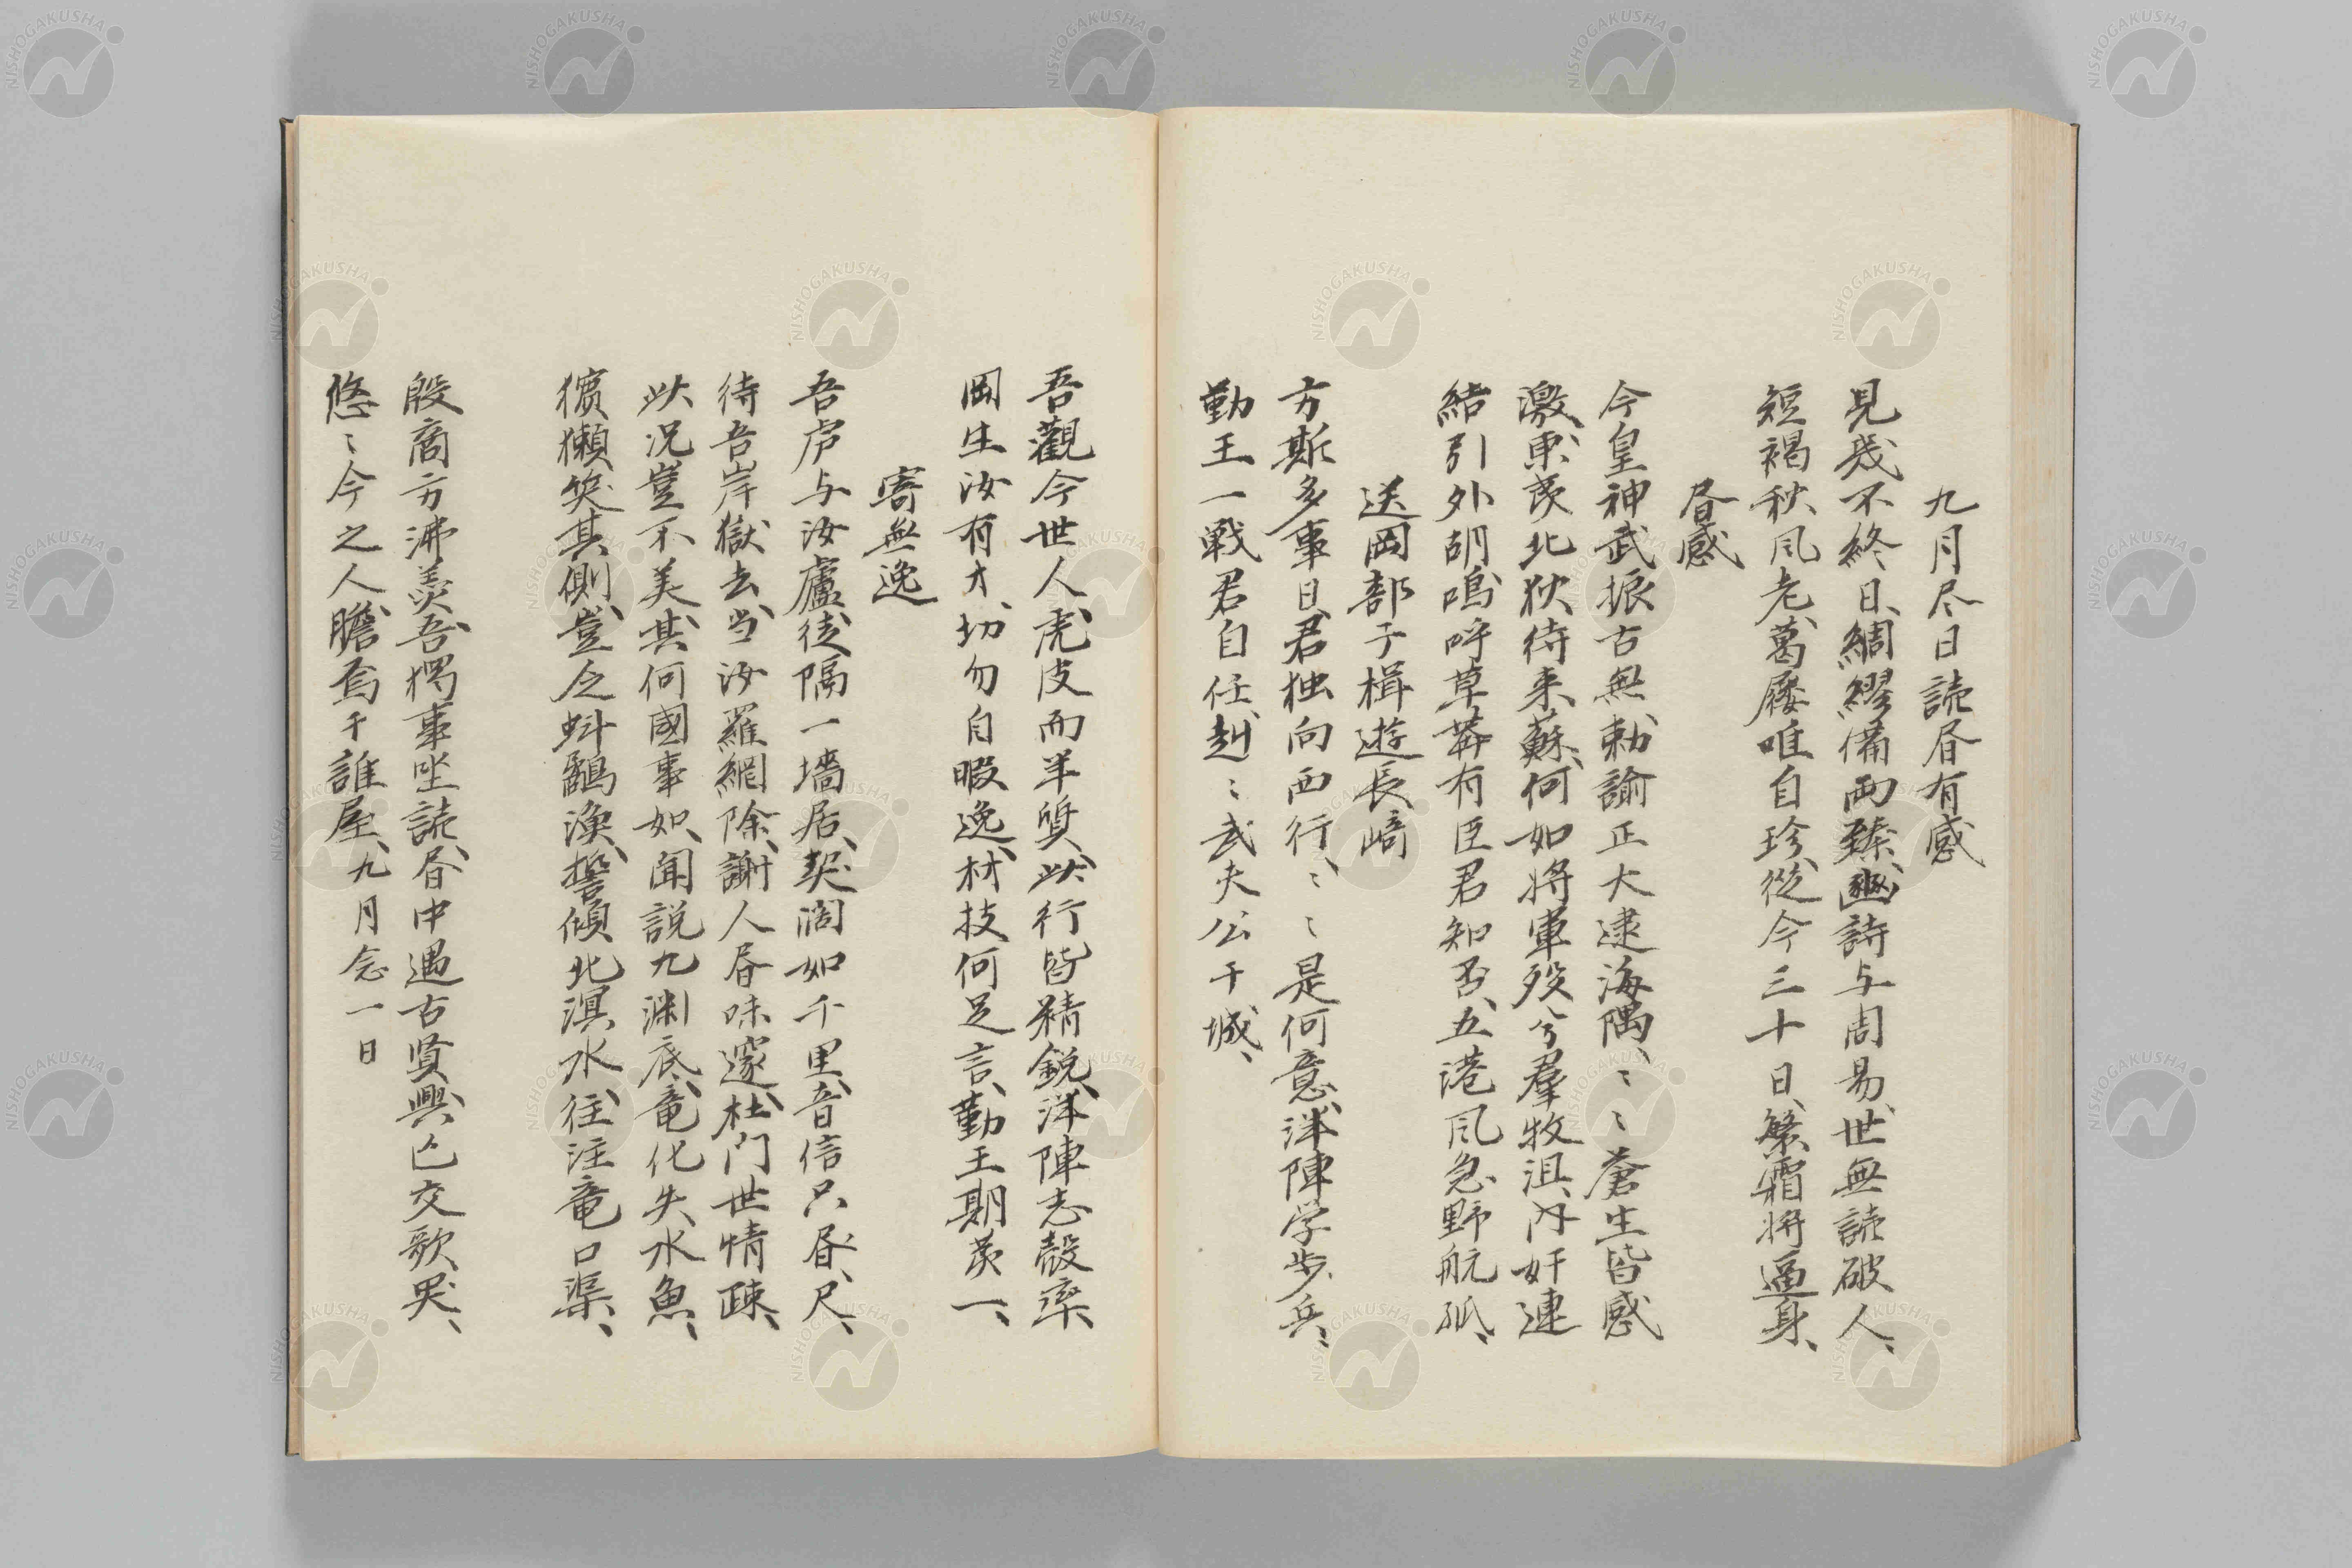 九月尽日読昼有感
見幾不終日、綢繆備雨臻、豳詩与周易、世無読破人、
短褐秋風老、葛屨唯自珍、從今三十日、繁霜将逼身、
昼感
今皇神武振古無、勅諭正大逮海隅、〻〻蒼生皆感
激、東夷北狄待来蘇、何如将軍歿兮羣牧沮、内奸連
結引外胡、嗚呼草莽有臣君知否、五港風急野航孤、
送岡部子楫遊長﨑
方斯多事日、君独向西行、〻〻是何意、洋陣学歩兵、
勤王一戦君自任、赳〻武夫公干城、
吾觀今世人、虎皮而羊質、此行皆精鋭、洋陣志彀率、
岡生汝有才、切勿自暇逸、材技何足言、勤王期第一、
寄無逸
吾庐与汝廬、徒隔一墻居、契闊如千里、音信只昼尺、
待吾岸獄去、当汝羅網除、謝人昼味邃、杜门世情疎、
此况豈不美、其何國事如、聞説九渊底、竜化失水魚、
獱獺笑其側、豈令蚪鷸漁、誓傾北溟水、往注竜口渠、
殷商方沸羹、吾獨事坐読、昼中遇古賢、興亡交歌哭、
悠〻今之人、瞻烏于誰屋、九月念一日
NISHOGAKUSHA